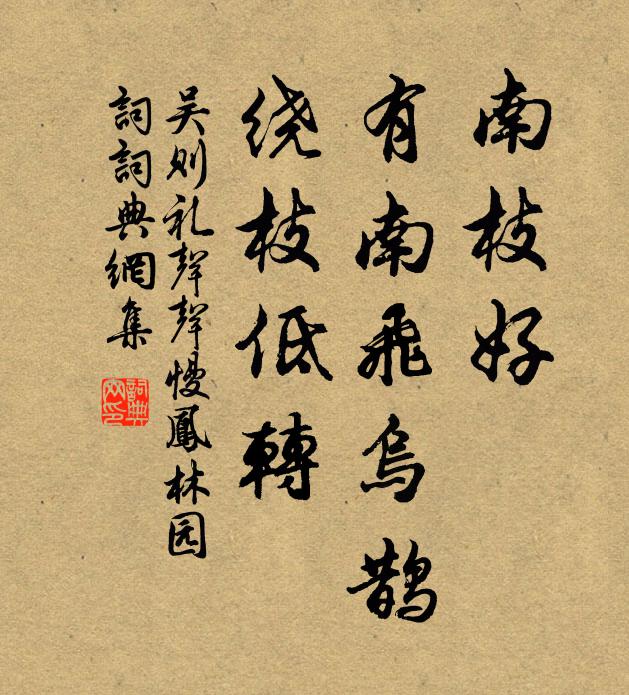 南枝好
有南飛烏鵲
绕枝低轉
吴则礼聲聲慢鳳林园
詞詞典網集
詞典网印